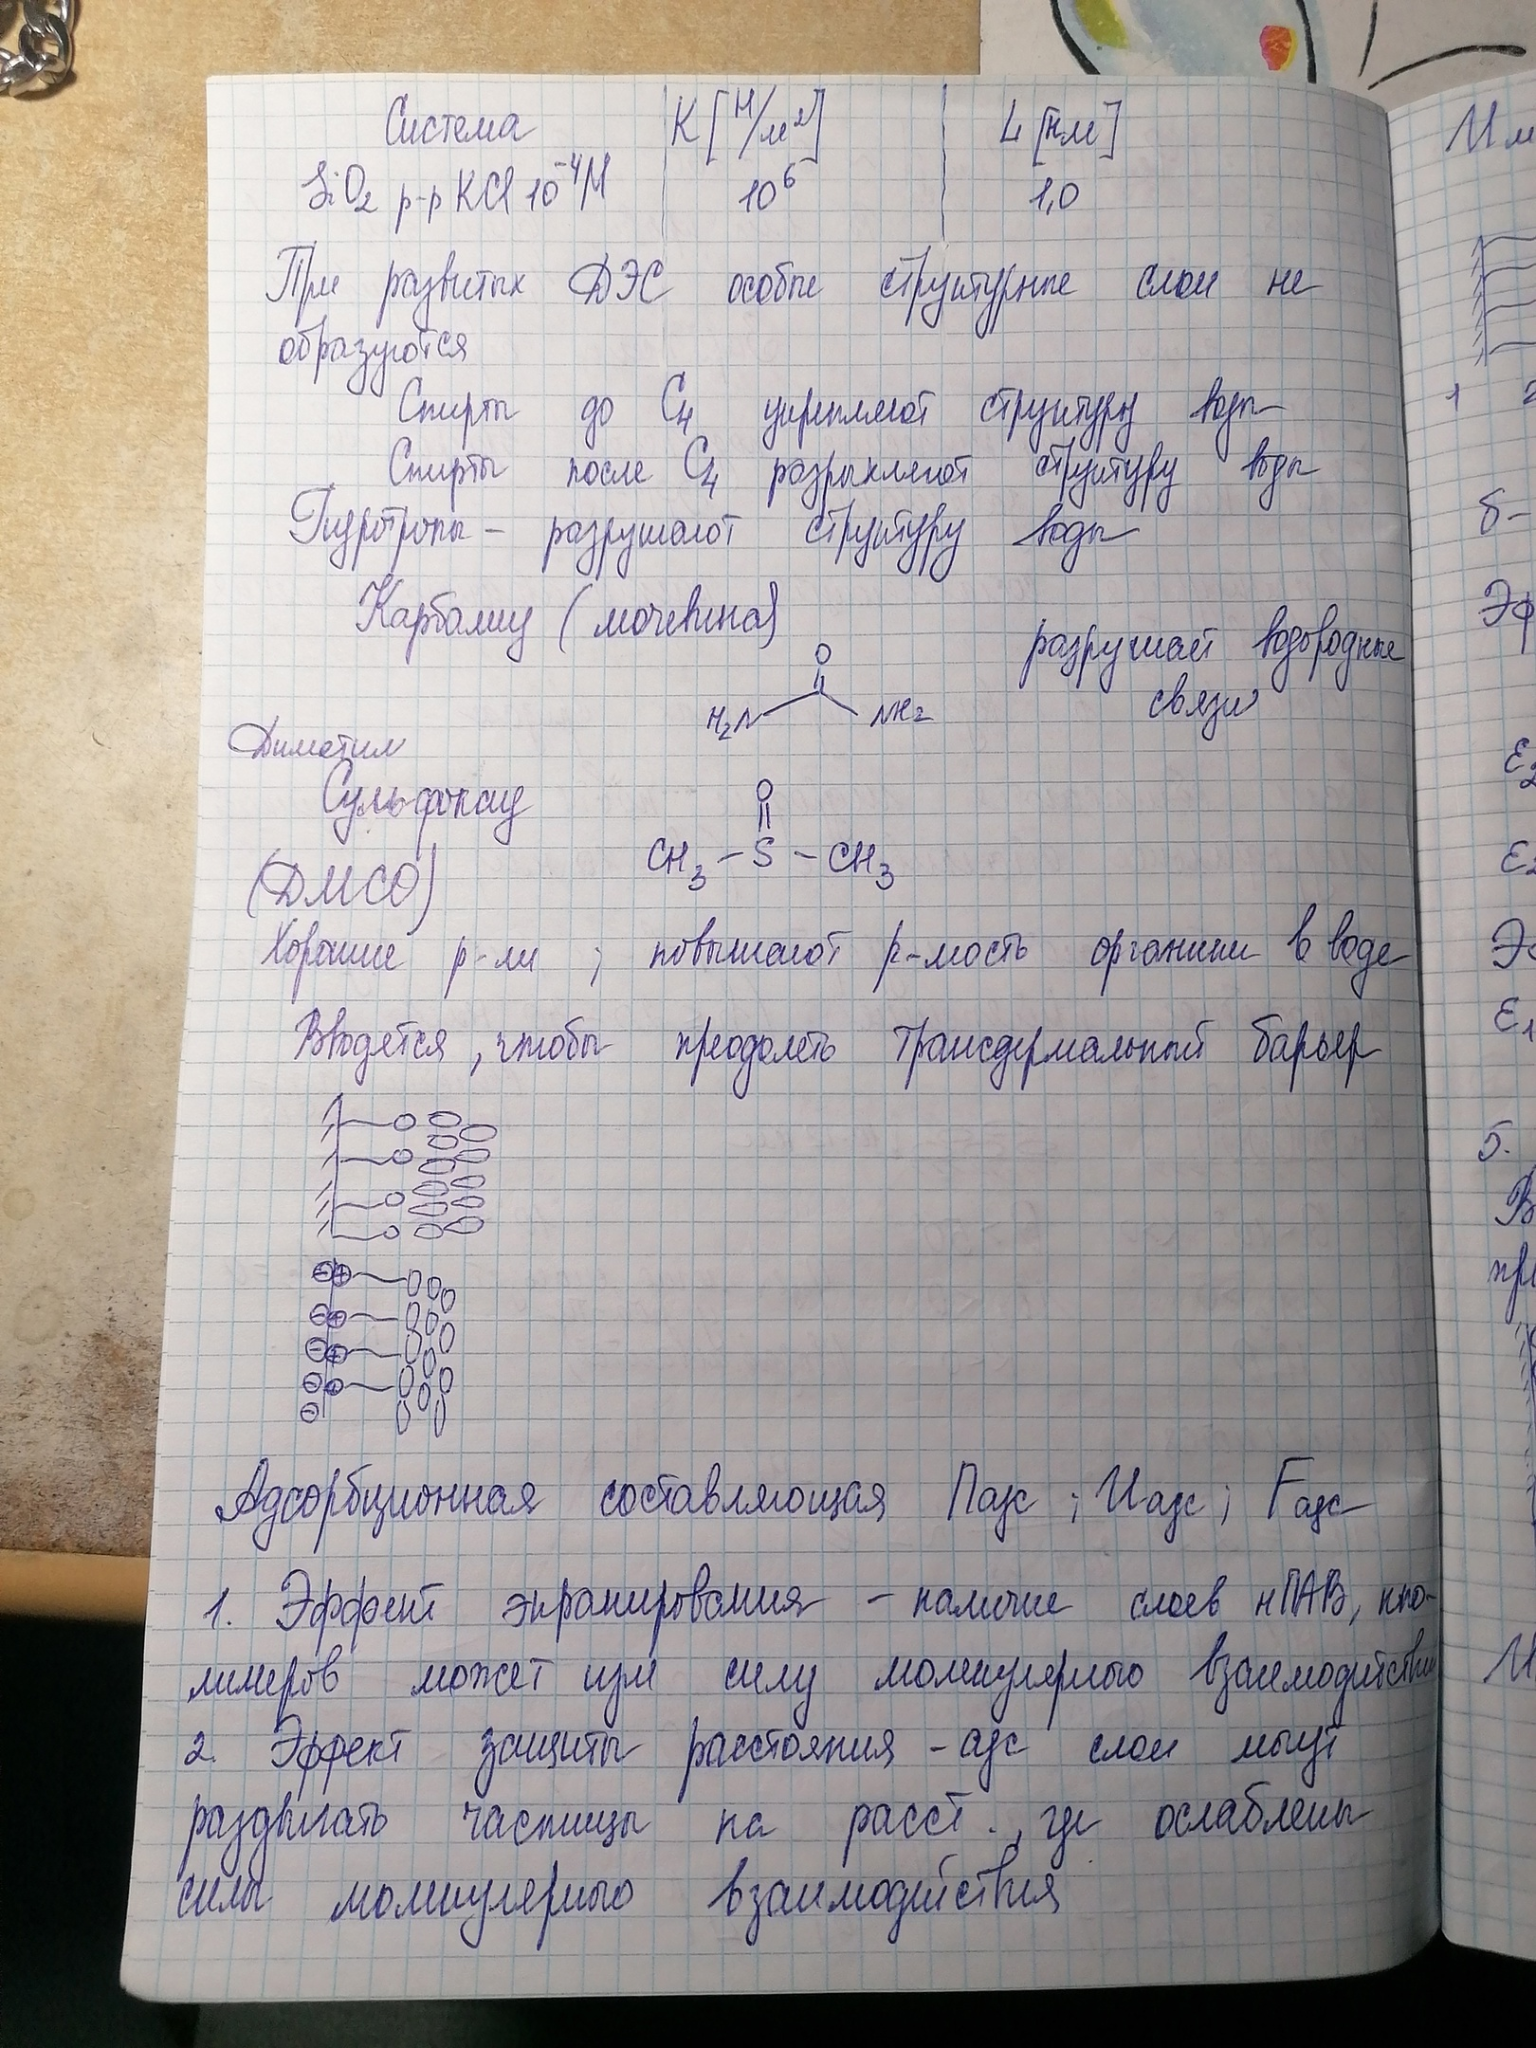 Система K [Н/м²] L [нм]
SiO₂ р-р KCl 10⁻⁴М 10⁶ 1,0
При развитых ДЭС особые структурные слои не
образуются
Спирты до C₄ укрепляют структуру воды
Спирты после C₄ разрыхляют структуру воды
Гидротропы – разрушают структуру воды
Карбамид (мочевина)
разрушает водородные
связи
O
H₂N NH₂
Диметил
Сульфоксид
(ДМСО)
O
CH₃ – S – CH₃
Хорошие р-ли ; повышают р-мость органики в воде
Вводятся, чтобы преодолеть трансдермальный барьер
Адсорбционная составляющая Падс ; Uадс ; Fадс
1. Эффект экранирования – наличие слоев нПАВ, по-
лимеров может изм силу молекулярного взаимодействия
2. Эффект защиты расстояния – адс слои могут
раздвигать частицы на расст., где ослаблены
силы молекулярного взаимодействия
1 2
б-
Эф
ε₂
ε₂
ε₁
5.
В